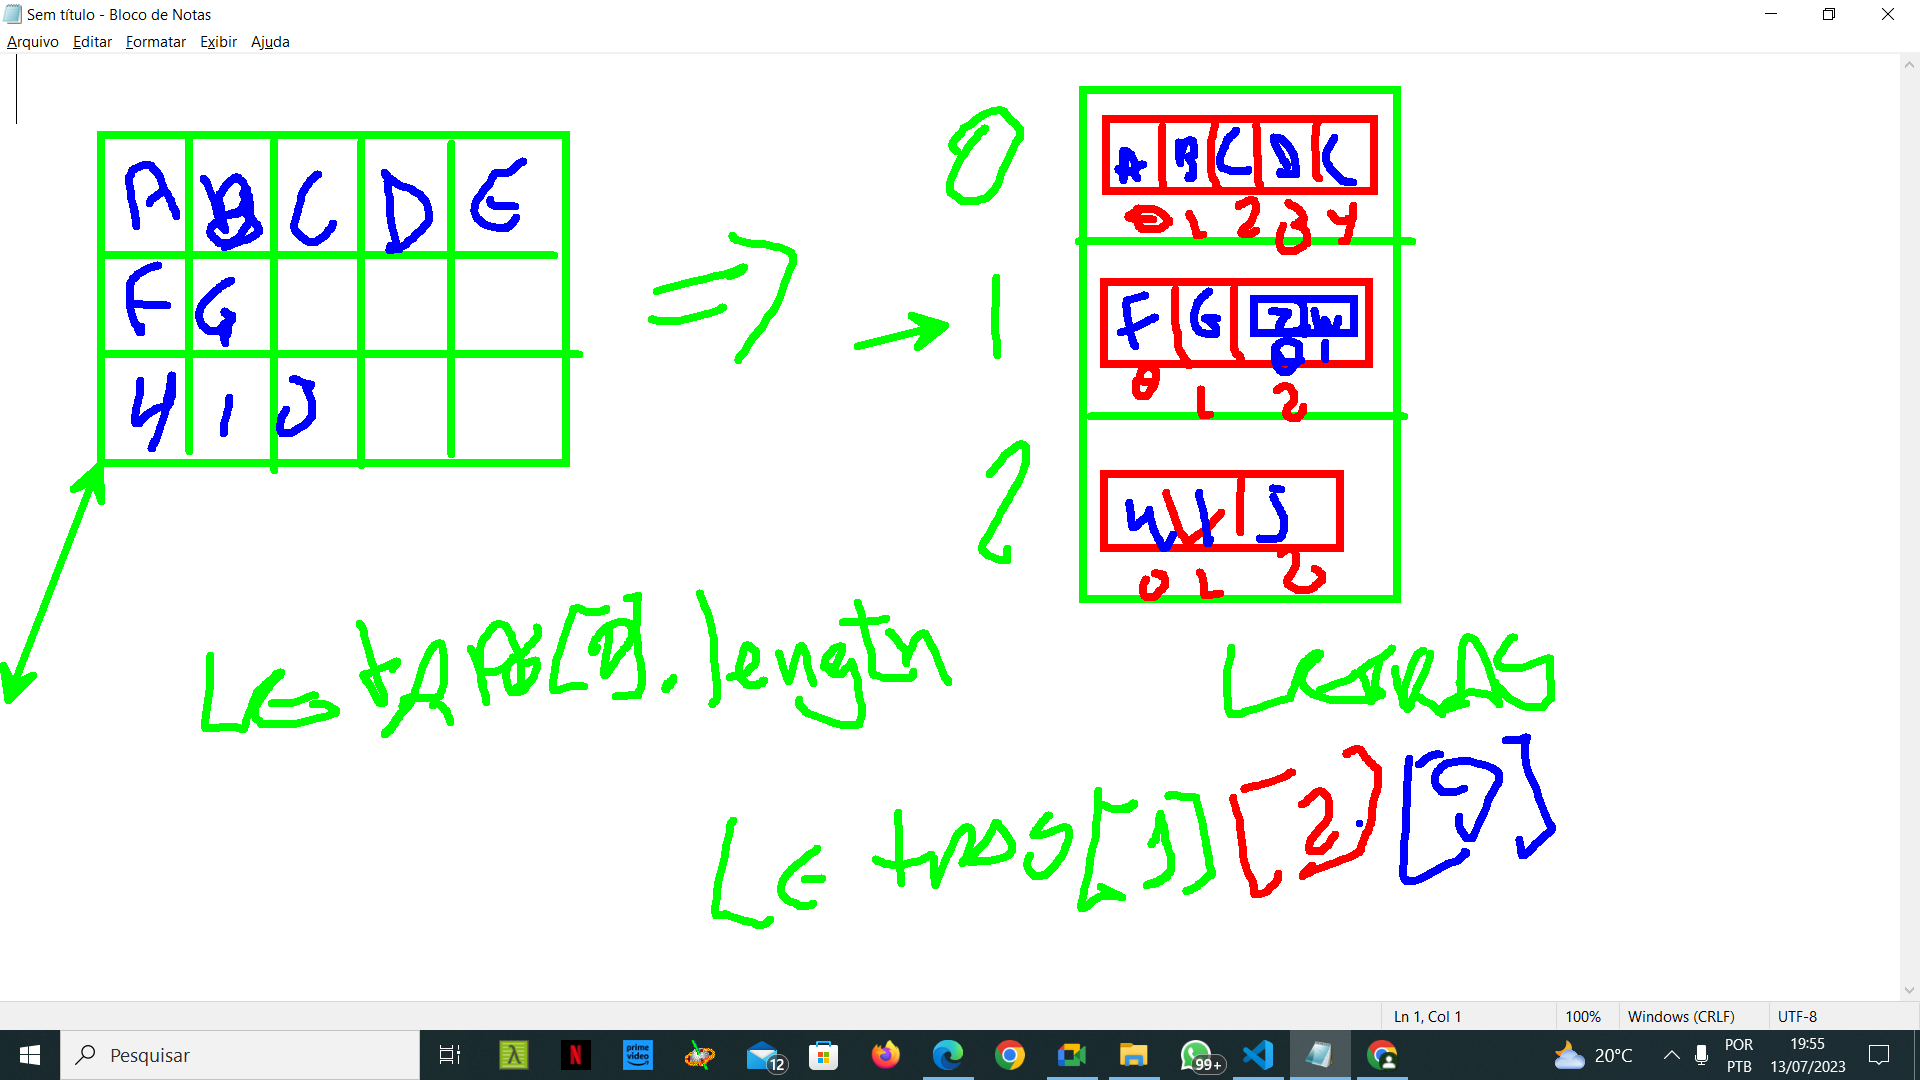 Sem título - Bloco de Notas
Arquivo Editar Formatar Exibir Ajuda
A B C D E
F G
H I J
=>
0
A B C D C
0 1 2 3 4
1
F G Z W
0 1
0 1 2
2
H I J
0 1 2
.length
LETRAS
[1][2]
Ln 1, Col 1 100% Windows (CRLF) UTF-8
Pesquisar
prime video
12
99+
20°C
POR
PTB
19:55
13/07/2023